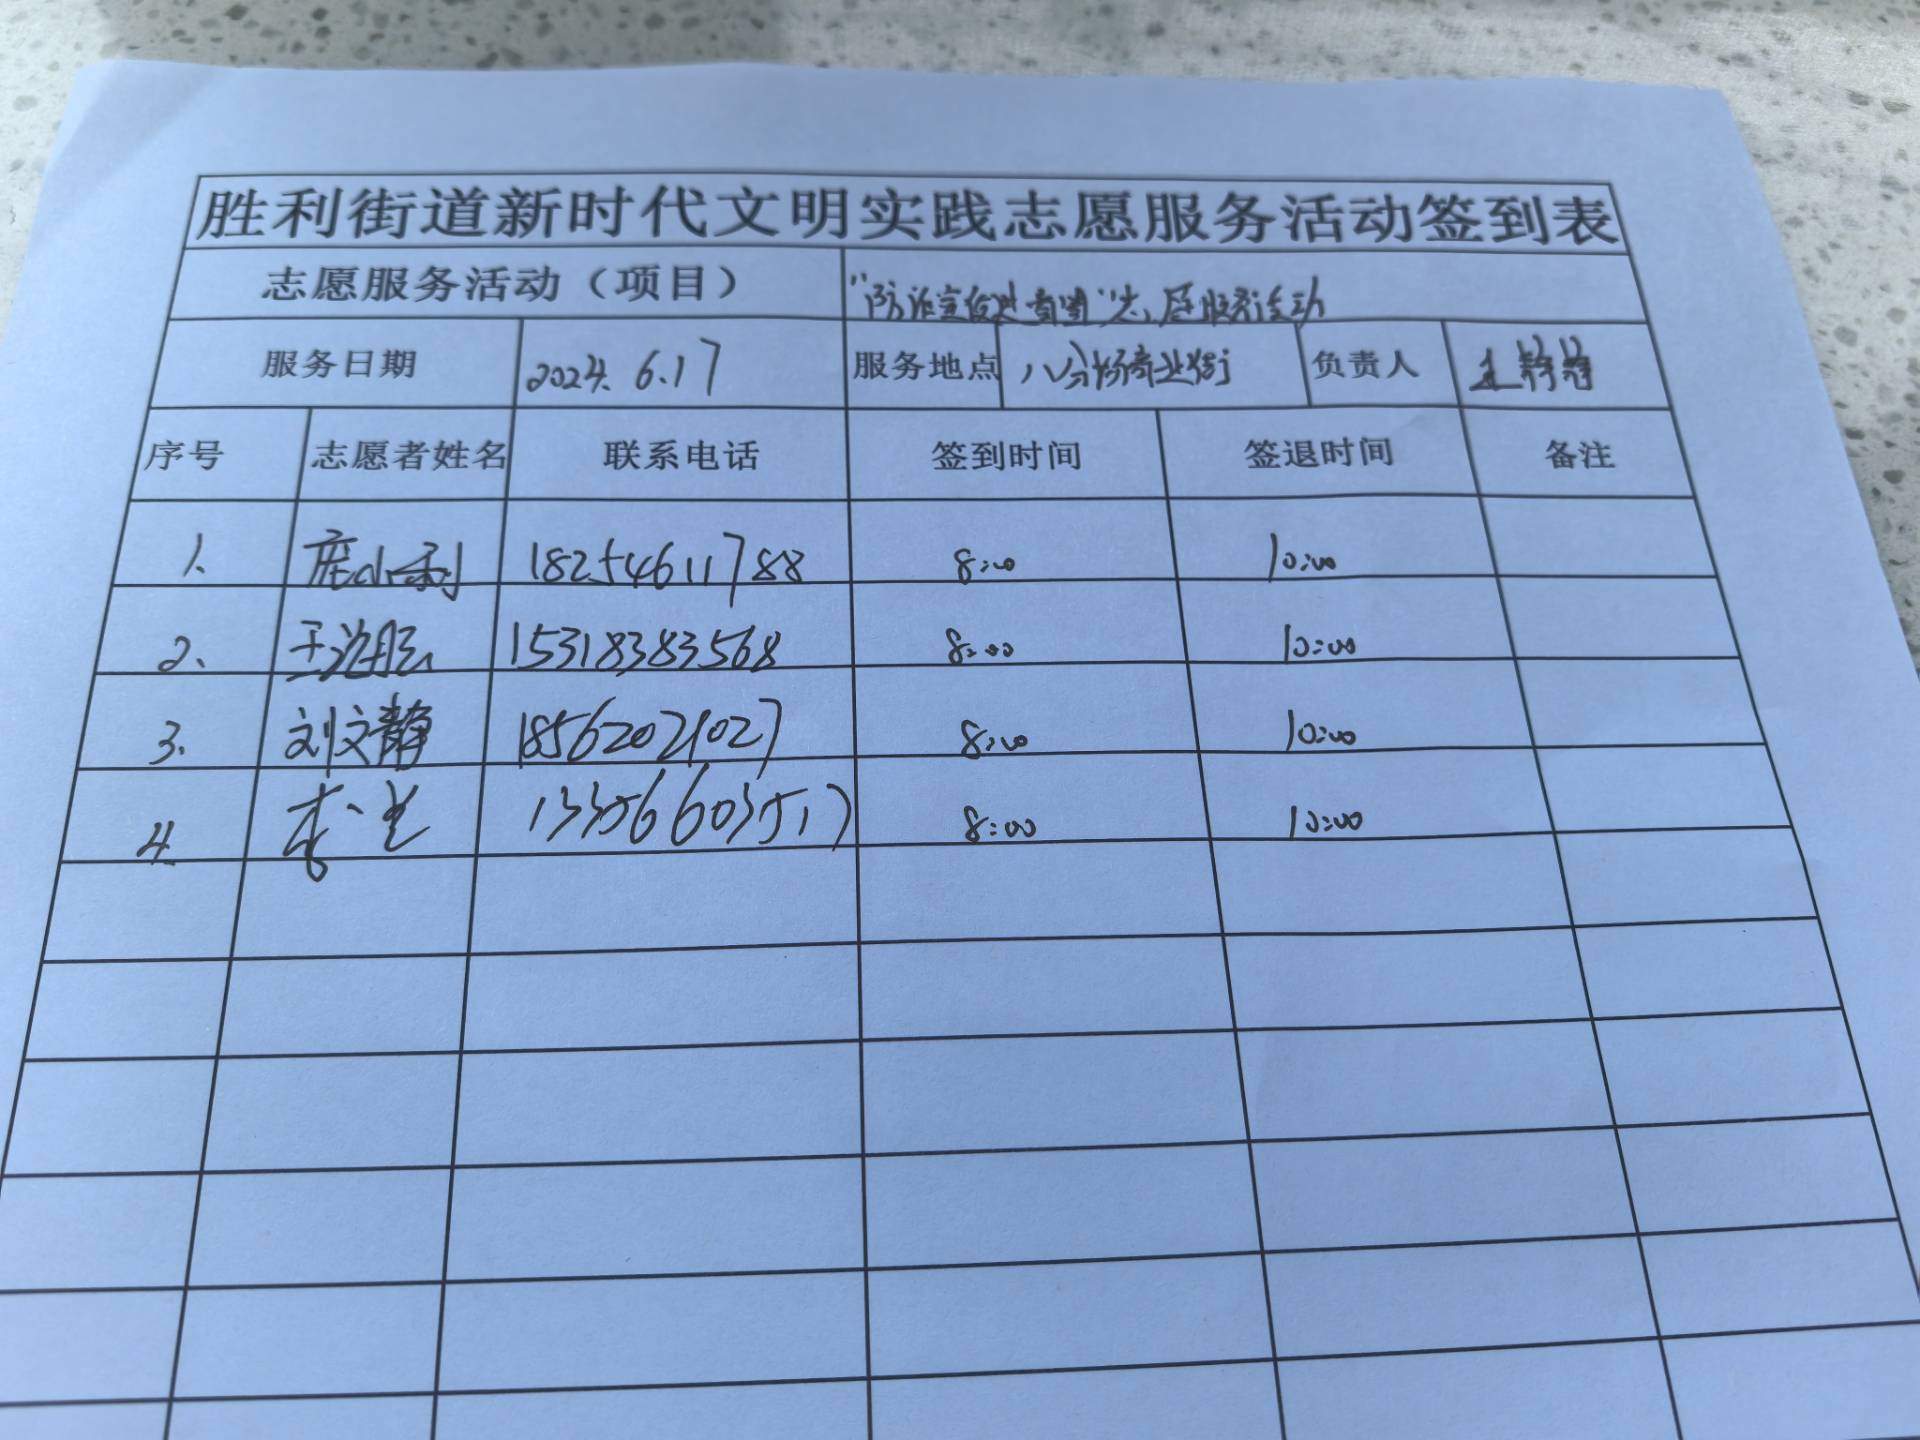 胜利街道新时代文明实践志愿服务活动签到表
志愿服务活动（项目） “防诈宣传进商圈”志愿服务活动
服务日期 2024.6.17 服务地点 八分场商业街 负责人 王静静
序号 志愿者姓名 联系电话 签到时间 签退时间 备注
1. 小利 18254611788 8:00 10:00
2. 王 15318383568 8:00 10:00
3. 刘文静 18562021027 8:00 10:00
4. 李 13356603517 8:00 10:00